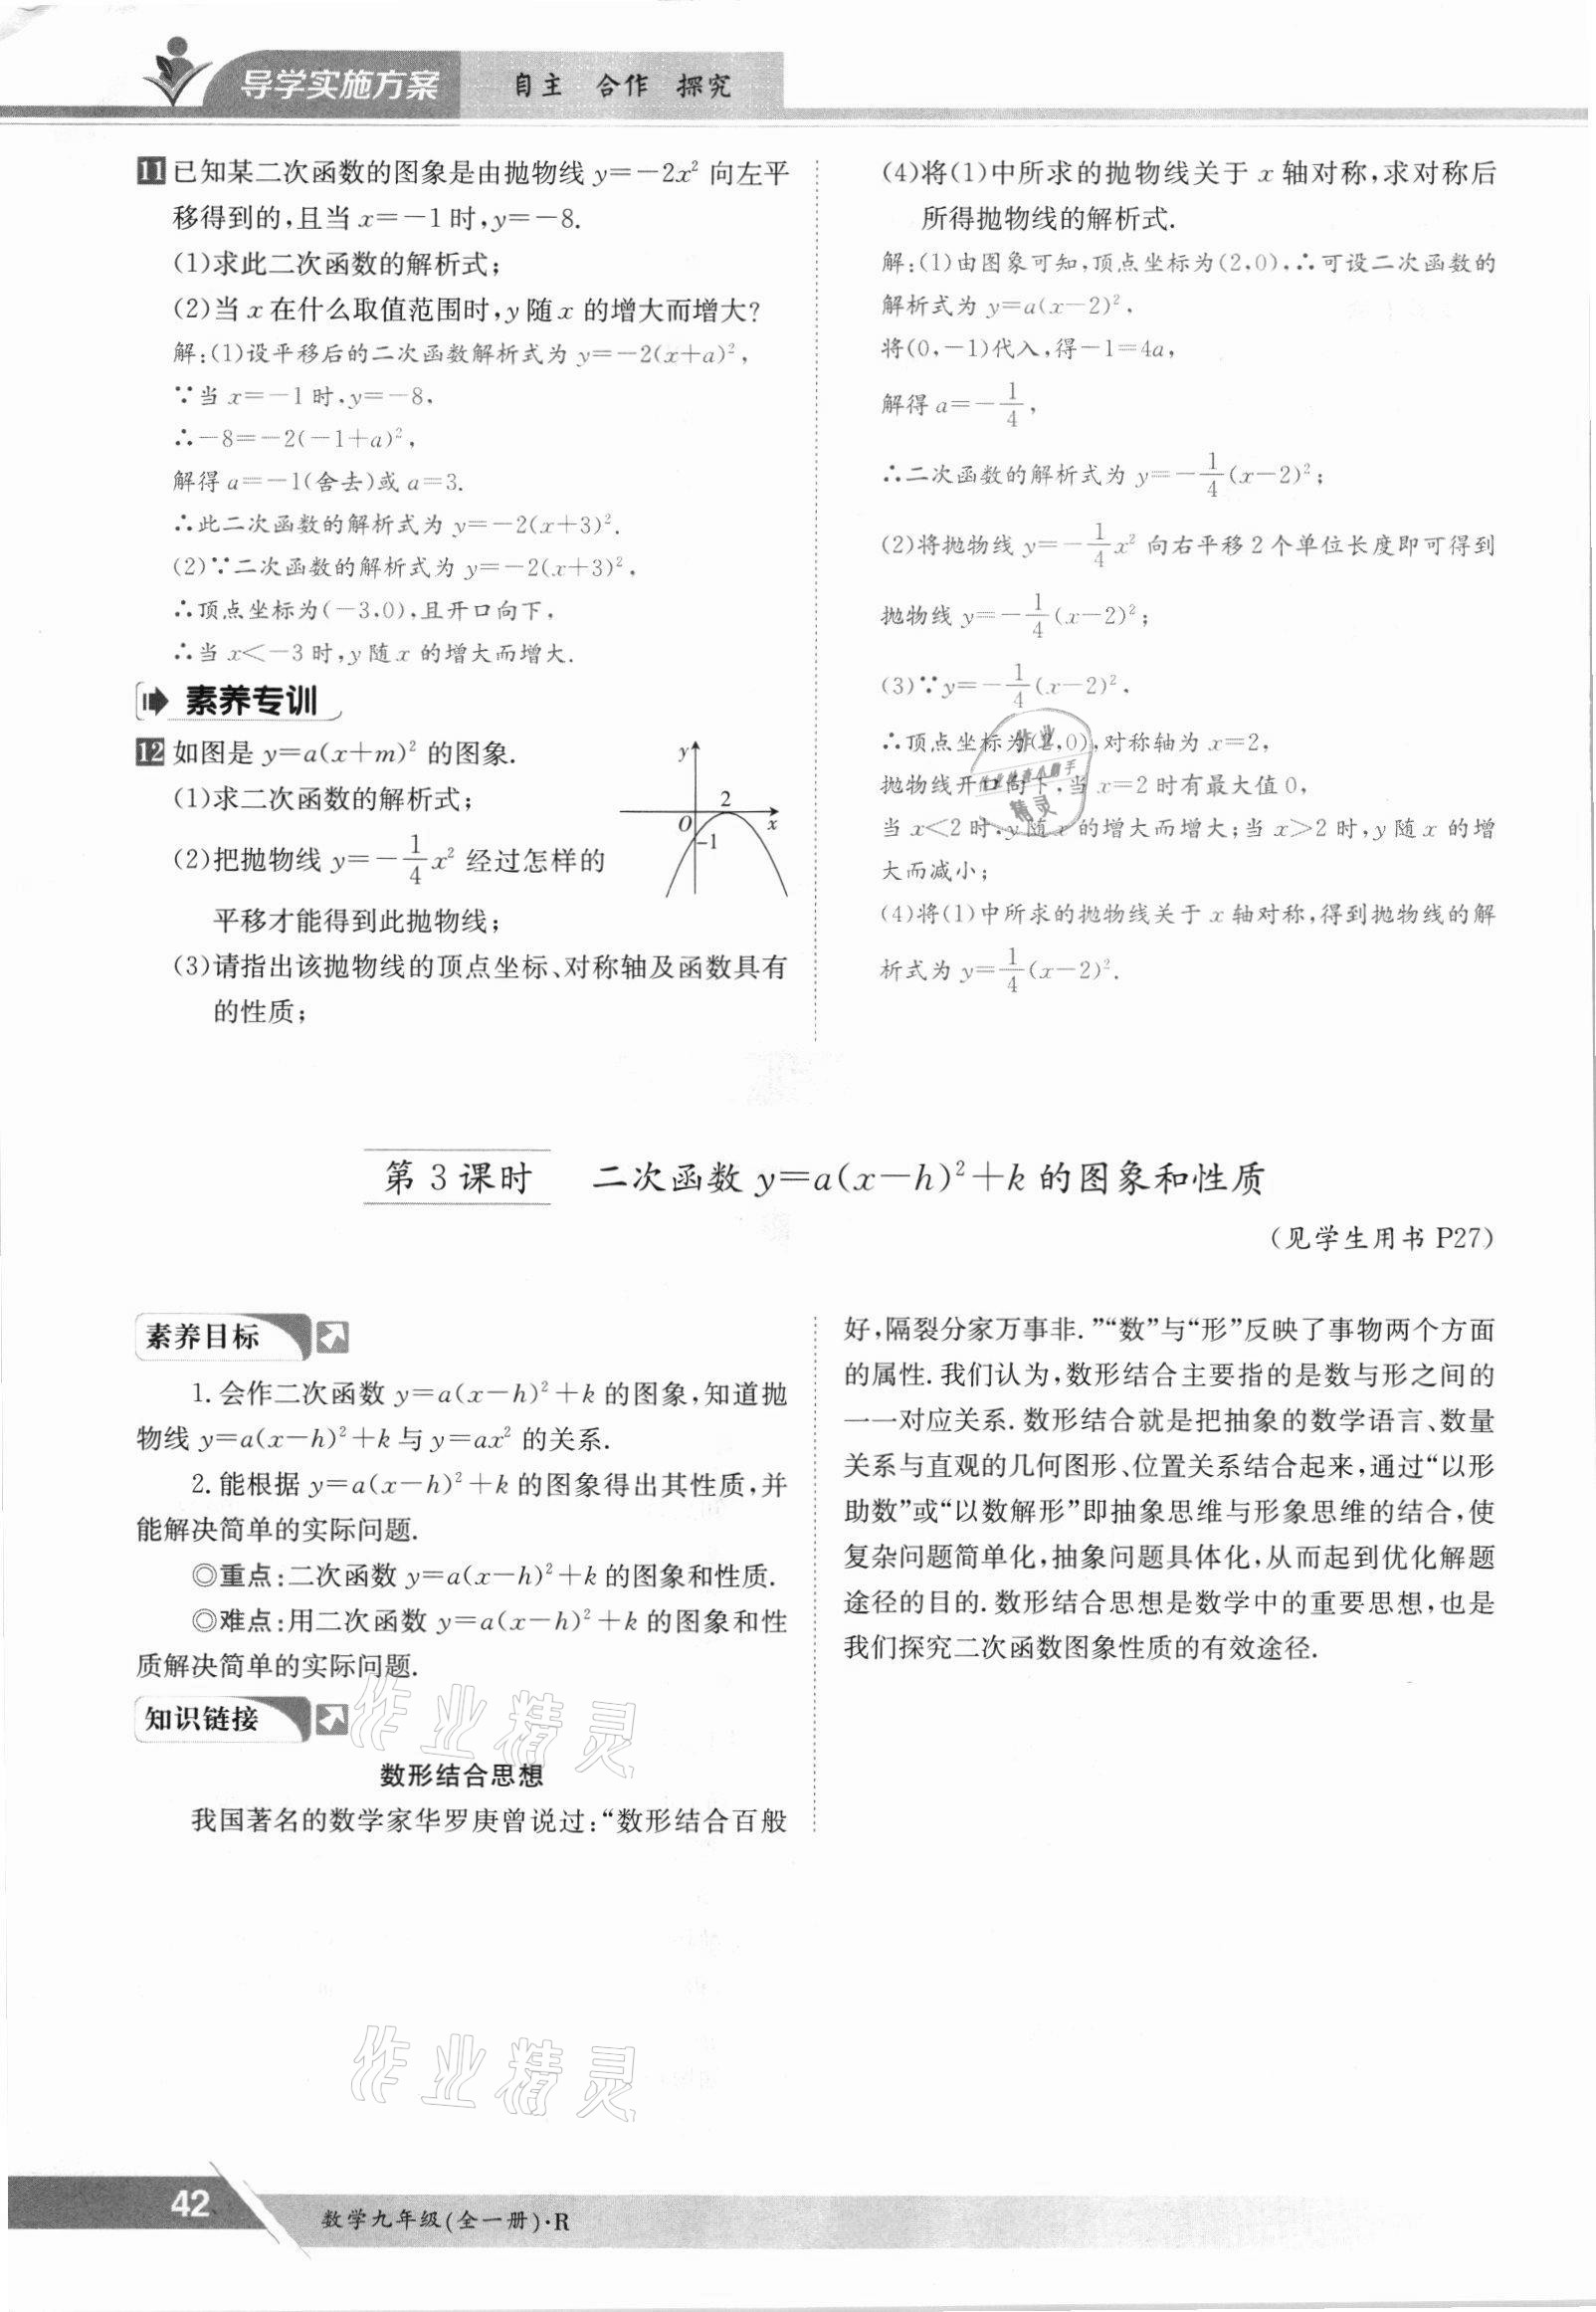 导学实施方案
自主 合作 探究
11 已知某二次函数的图象是由抛物线 y=-2x² 向左平
移得到的,且当 x=-1 时,y=-8.
(1)求此二次函数的解析式;
(2)当 x 在什么取值范围时,y 随 x 的增大而增大?
解:(1)设平移后的二次函数解析式为 y=-2(x+a)²,
∵当 x=-1 时,y=-8,
∴-8=-2(-1+a)²,
解得 a=-1(舍去)或 a=3.
∴此二次函数的解析式为 y=-2(x+3)².
(2)∵二次函数的解析式为 y=-2(x+3)²,
∴顶点坐标为(-3,0),且开口向下,
∴当 x<-3 时,y 随 x 的增大而增大.
素养专训
12 如图是 y=a(x+m)² 的图象.
(1)求二次函数的解析式;
(2)把抛物线 y=-1/4x² 经过怎样的
平移才能得到此抛物线;
(3)请指出该抛物线的顶点坐标、对称轴及函数具有
的性质;
y
2
O
x
-1
(4)将(1)中所求的抛物线关于 x 轴对称,求对称后
所得抛物线的解析式.
解:(1)由图象可知,顶点坐标为(2,0),∴可设二次函数的
解析式为 y=a(x-2)²,
将(0,-1)代入,得-1=4a,
解得 a=-1/4,
∴二次函数的解析式为 y=-1/4(x-2)²;
(2)将抛物线 y=-1/4x² 向右平移 2 个单位长度即可得到
抛物线 y=-1/4(x-2)²;
(3)∵y=-1/4(x-2)²,
∴顶点坐标为(2,0),对称轴为 x=2,
抛物线开口向下,当 x=2 时有最大值 0,
当 x<2 时,y 随 x 的增大而增大;当 x>2 时,y 随 x 的增
大而减小;
(4)将(1)中所求的抛物线关于 x 轴对称,得到抛物线的解
析式为 y=1/4(x-2)².
第 3 课时 二次函数 y=a(x-h)²+k 的图象和性质
(见学生用书 P27)
素养目标
1. 会作二次函数 y=a(x-h)²+k 的图象,知道抛
物线 y=a(x-h)²+k 与 y=ax² 的关系.
2. 能根据 y=a(x-h)²+k 的图象得出其性质,并
能解决简单的实际问题.
◎重点:二次函数 y=a(x-h)²+k 的图象和性质.
◎难点:用二次函数 y=a(x-h)²+k 的图象和性
质解决简单的实际问题.
知识链接
数形结合思想
我国著名的数学家华罗庚曾说过:“数形结合百般
好,隔裂分家万事非.”“数”与“形”反映了事物两个方面
的属性. 我们认为,数形结合主要指的是数与形之间的
一一对应关系. 数形结合就是把抽象的数学语言、数量
关系与直观的几何图形、位置关系结合起来,通过“以形
助数”或“以数解形”即抽象思维与形象思维的结合,使
复杂问题简单化,抽象问题具体化,从而起到优化解题
途径的目的. 数形结合思想是数学中的重要思想,也是
我们探究二次函数图象性质的有效途径.
作业精灵
作业精灵
42
数学九年级(全一册)·R